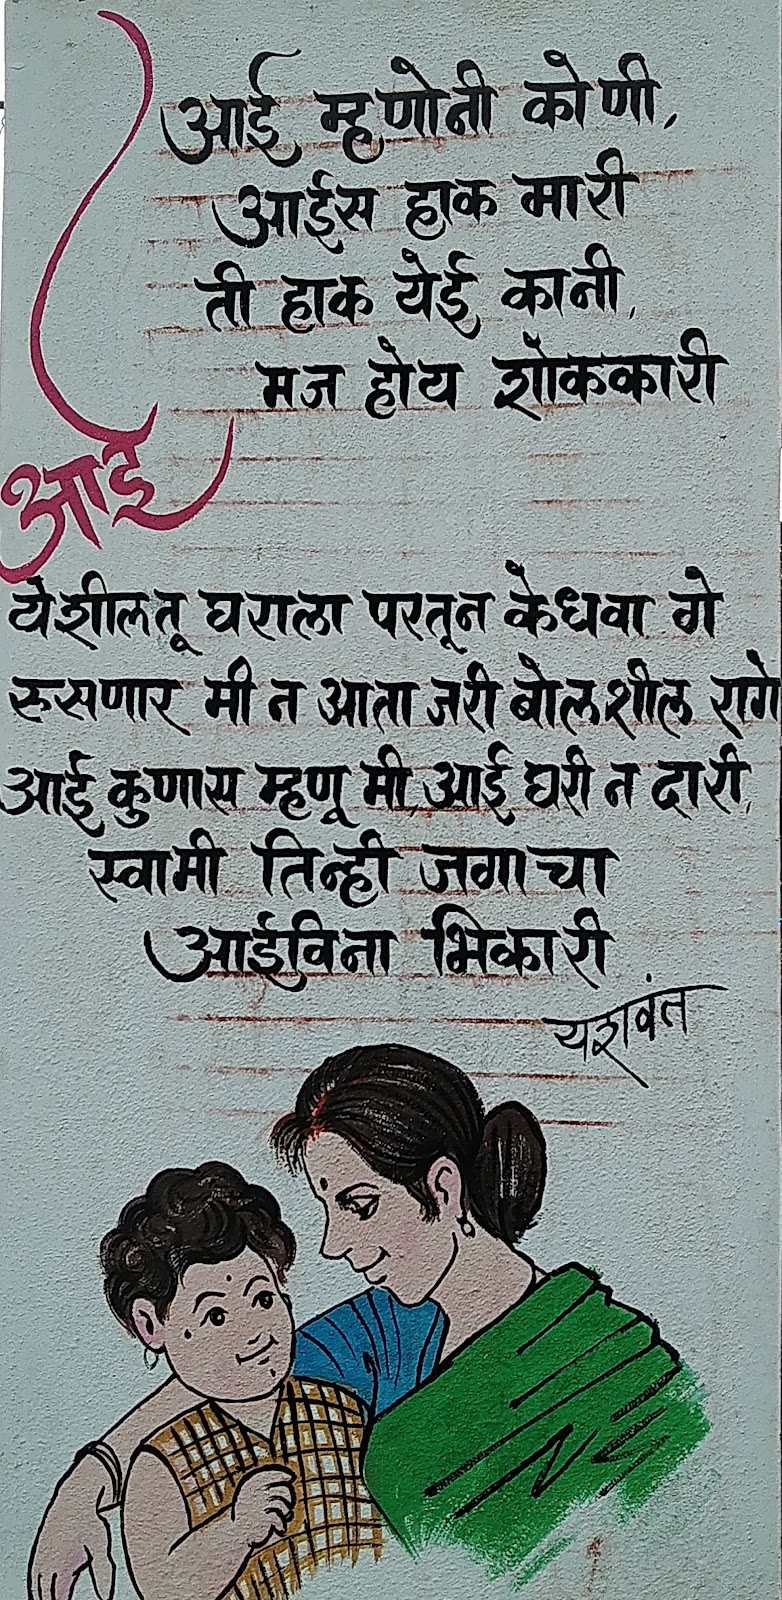 आई म्हणोनी कोणी,
आईस हाक मारी
ती हाक येई कानी,
मज होय शोककारी
आई
येशील तू घराला परतून केधवा गे
रुसणार मी न आता जरी बोलशील रागे
आई कुणास म्हणू मी, आई घरी न दारी,
स्वामी तिन्ही जगाचा
आईविना भिकारी
यशवंत